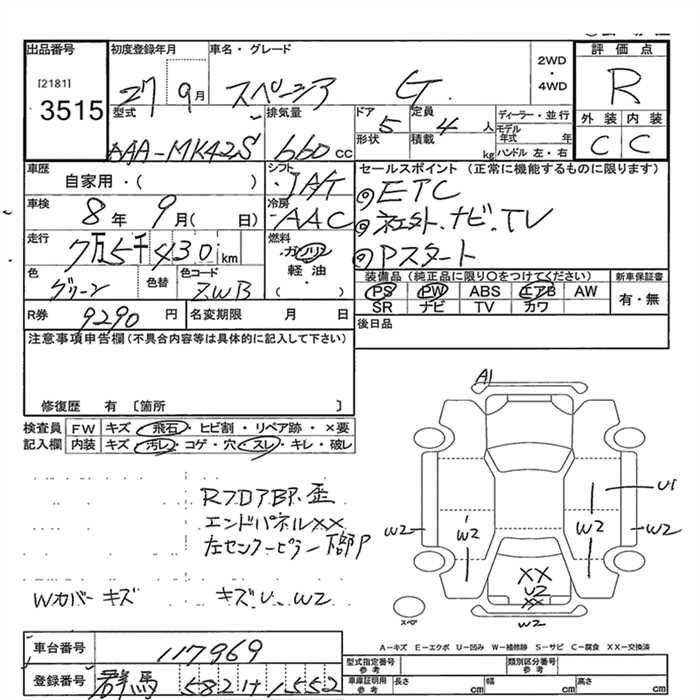 出品番号
[2181]
3515
初度登録年月
27 9月
車名・グレード
スペーシア G.
2WD
・
4WD
評価点
R
外装 内装
C C
型式
AAA-MK42S
排気量
660 cc
ドア
5
定員
4 人
形状
積載
kg
ディーラー・並行
モデル年式 年
ハンドル 左・右
車歴
自家用・( )
シフト
IAT
セールスポイント (正常に機能するものに限ります)
◎ETC
◎社外.ナビ.TV
◎Pスタート
車検
8年 9月( 日)
冷房
AAC
走行
7万5千430 km
燃料
ガソリン
軽油
( )
色
グリーン
色替
色コード
ZWB
装備品 (純正品に限り○をつけてください)
PS PW ABS エアB AW
SR ナビ TV カワ
新車保証書
有・無
R券
9290 円
名変期限 月 日
後日品
注意事項申告欄(不具合内容等は具体的に記入して下さい)
修復歴 有 〔箇所 〕
検査員記入欄
FW キズ・飛石・ヒビ割・リペア跡・×要
内装 キズ・汚レ・コゲ・穴・スレ・キレ・破レ
RフロアBP.歪
エンドパネルXX
左センターピラー下部P
Wカバー キズ
キズ U. W2
A1
U1
W2
W2
W2
W2
XX
U2
XX
W2
スペア
A−キズ E−エクボ U−凹み W−補修跡 S−サビ C−腐食 XX−交換済
車台番号
117969
登録番号
群馬 582 1552
型式指定番号
参考
類別区分番号
参考
車庫証明用
参考
長さ cm
幅 cm
高さ cm